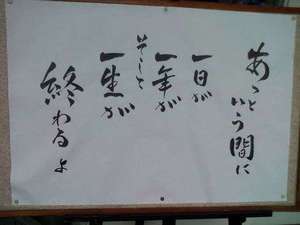 あっという間に
一日が
一年が
そして
一生が
終わるよ